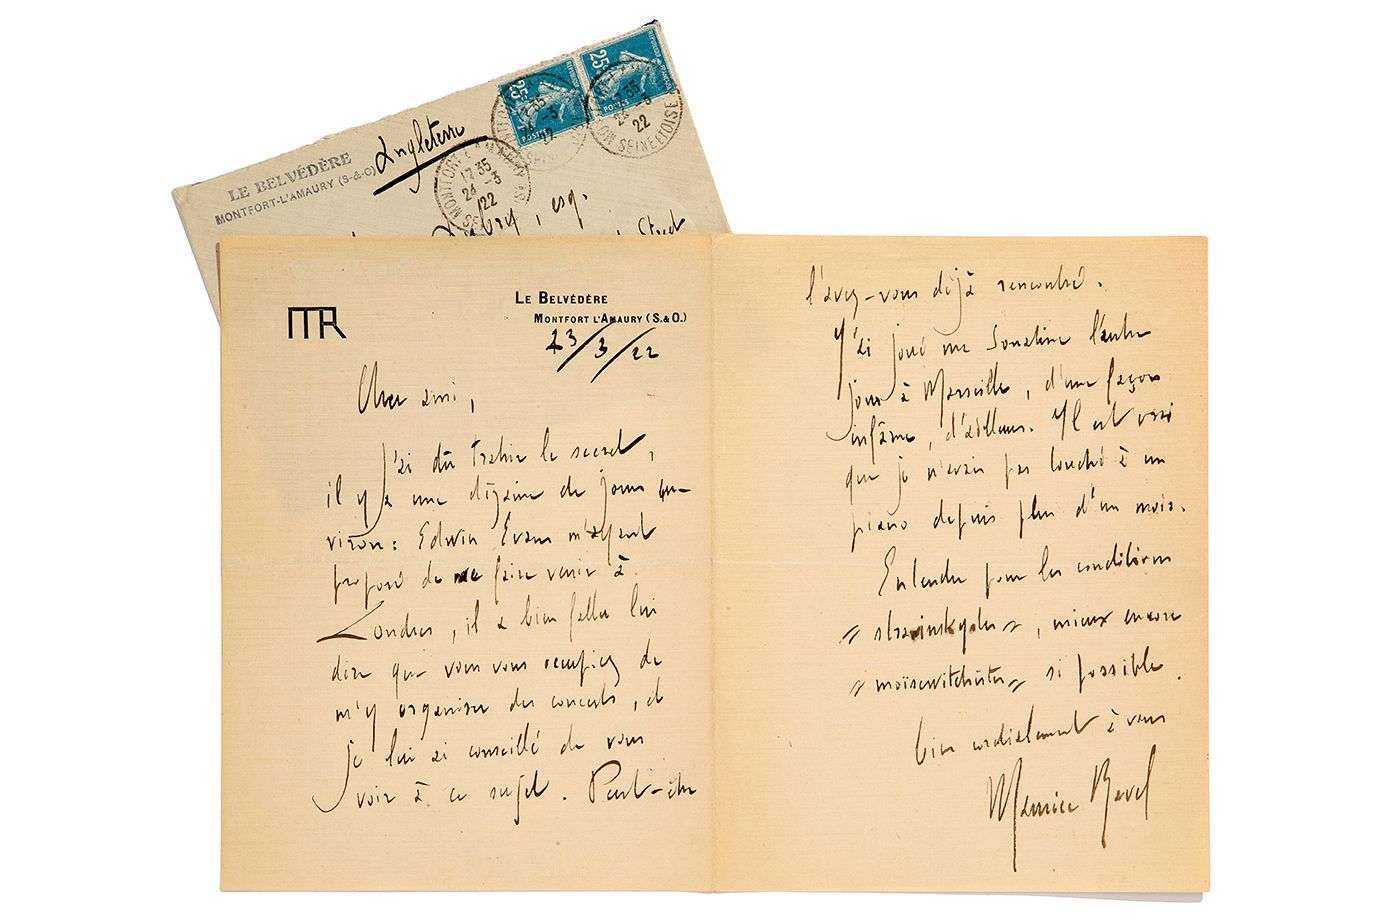 LE BELVÉDÈRE
MONTFORT-L'AMAURY (S-&-O)
Angleterre
25c
POSTES
25c
POSTES
MONTFORT L'AMAURY
17 35
24 -3
22
SEINE ET OISE
esq.
Street
MR
LE BELVÉDÈRE
MONTFORT L'AMAURY (S.&O.)
23/3/22
Cher ami,
J'ai dû trahir le secret,
il y a une dizaine de jours en-
viron : Edwin Evans m'ayant
proposé de me faire venir à
Londres, il a bien fallu lui
dire que vous vous occupiez de
m'y organiser des concerts, et
je lui ai conseillé de vous
voir à ce sujet. Peut-être
l'avez-vous déjà rencontré.
J'ai joué ma Sonatine l'autre
jour à Marseille, d'une façon
infâme, d'ailleurs. Il est vrai
que je n'avais pas touché à un
piano depuis plus d'un mois.
Entendu pour les conditions
"stravinskystes", mieux encore
"moïsewitchistes" si possible.
bien cordialement à vous
Maurice Ravel